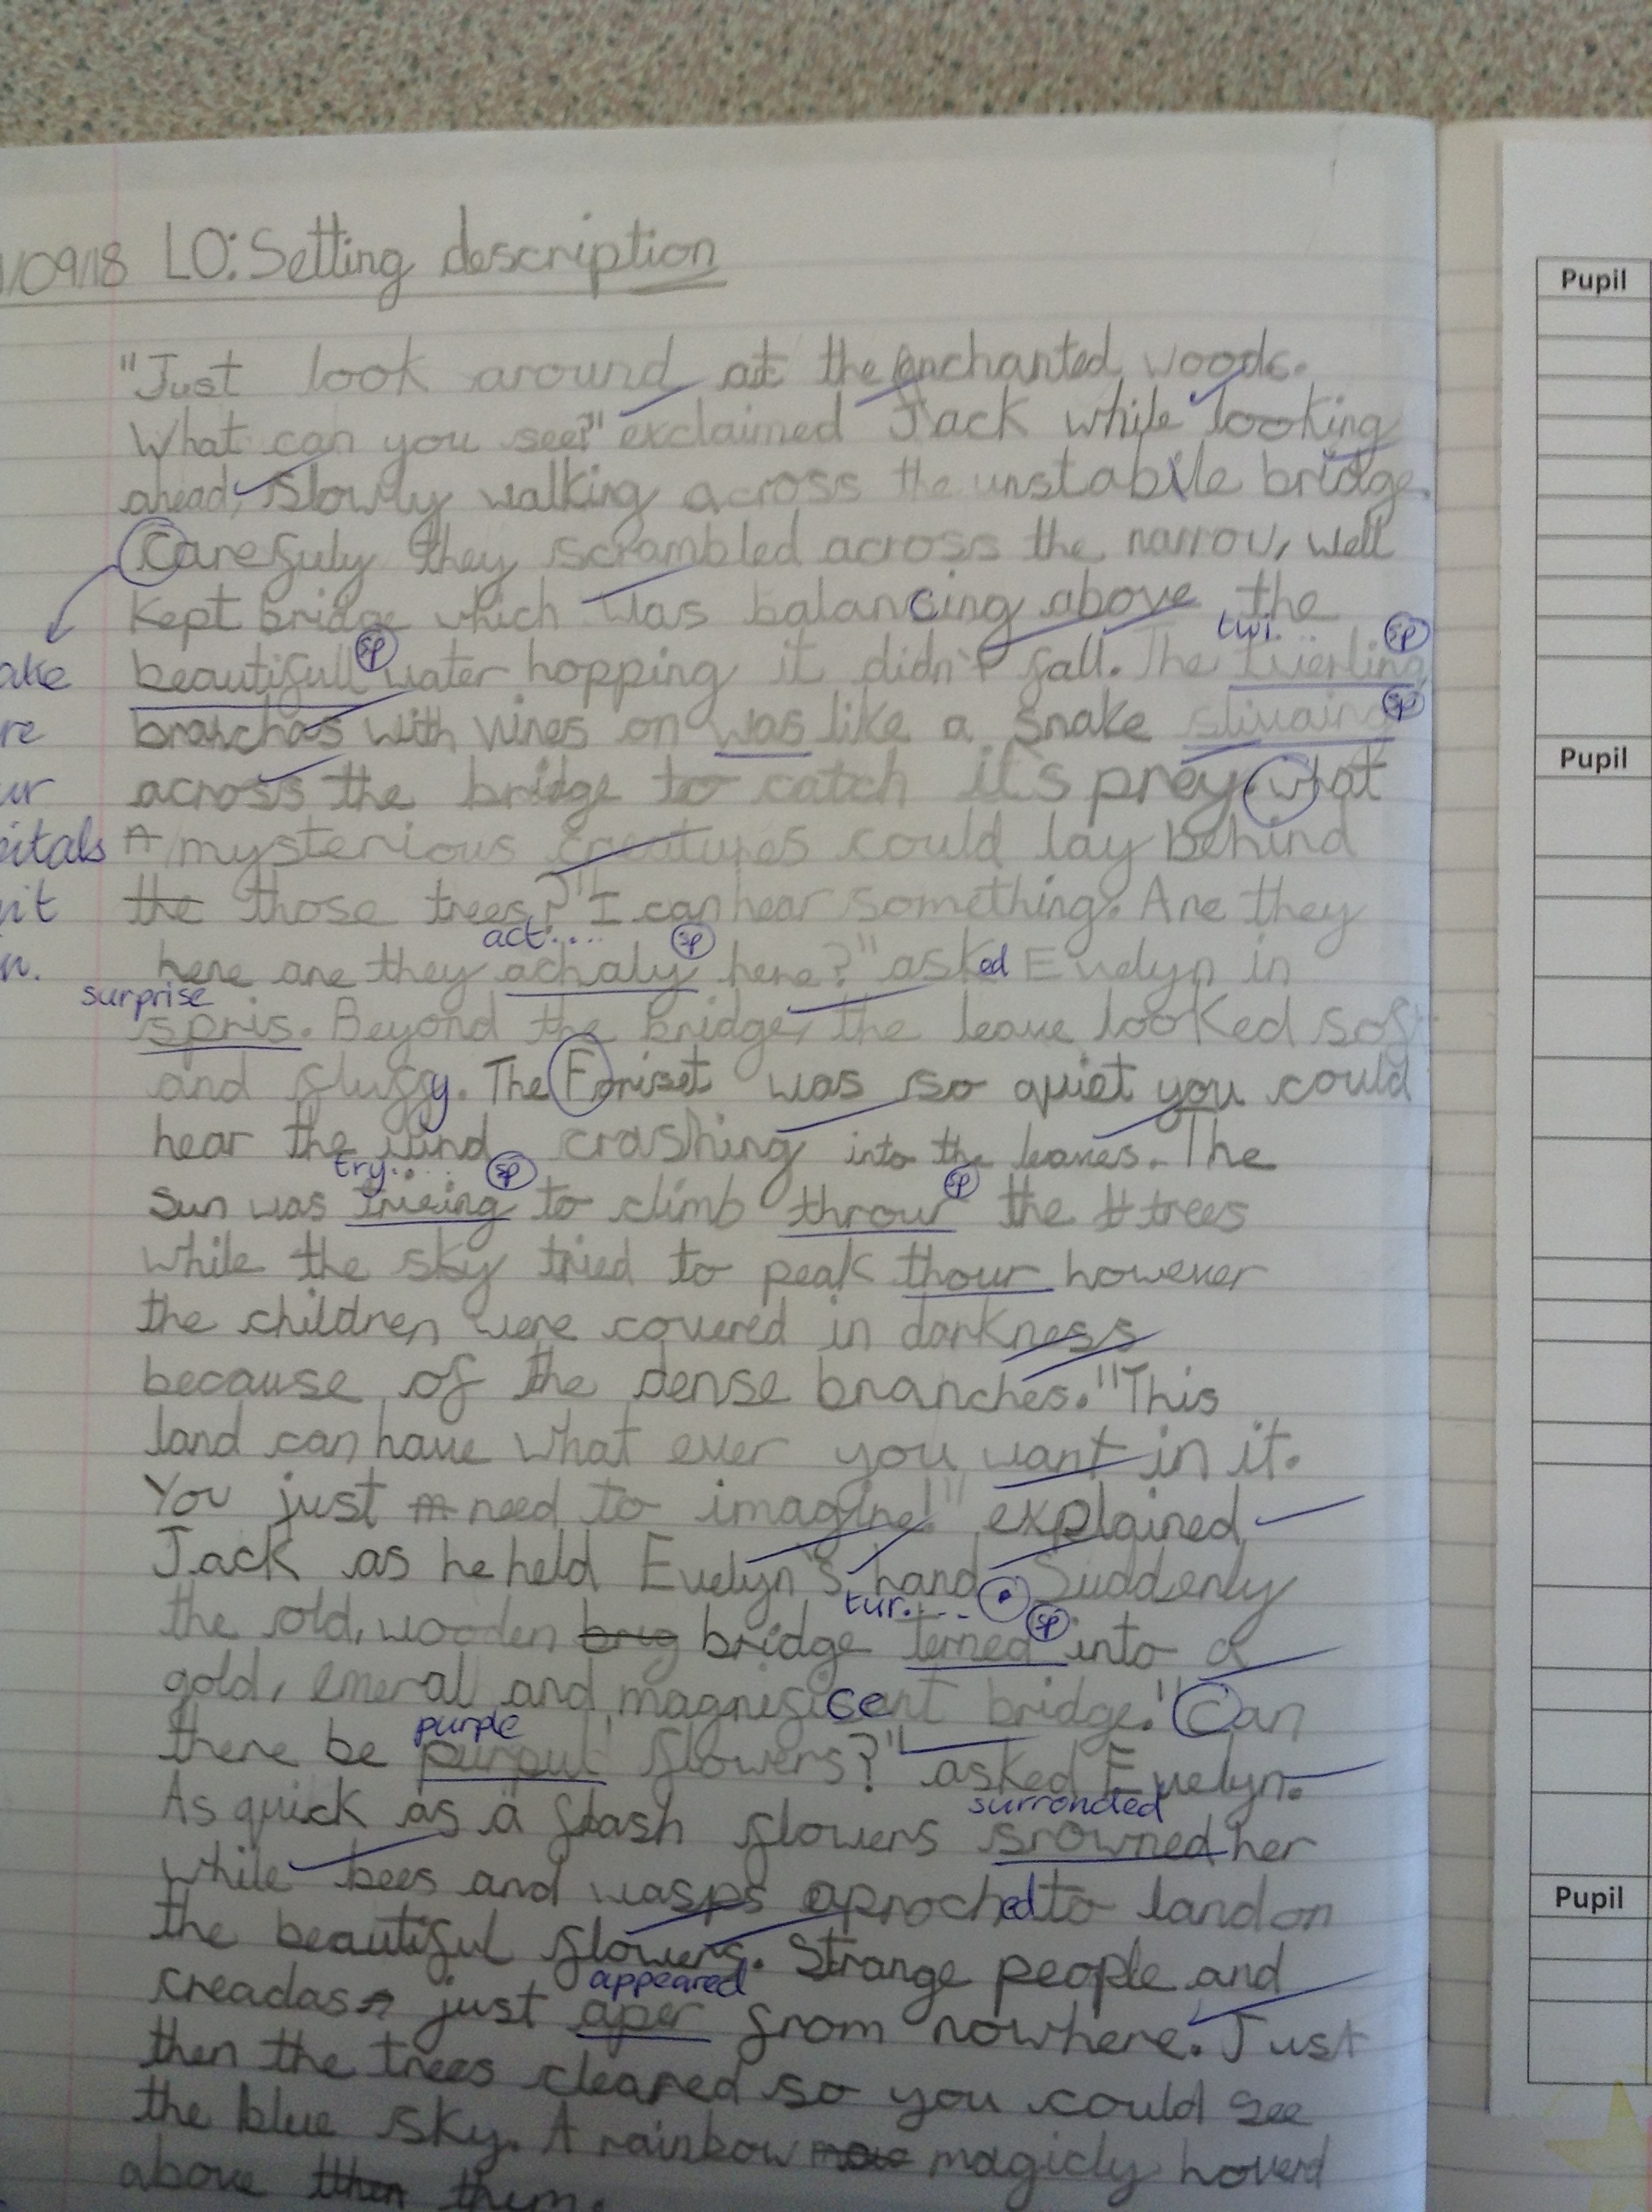 /09/18 LO: Setting description
"Just look around at the enchanted woods.
What can you see?" exclaimed Jack while looking
ahead, slowly walking across the unstabile bridge.
Carefuly they scrambled across the narrow, well
kept bridge which was balancing above the
twi.
sp
beautifull sp water hopping it didn't fall. The twerling
sp
branchas with vines on was like a snake slivaing
across the bridge to catch it's prey. what
A mysterious creatures could lay behind
the those trees? "I can hear something. Are they
act.... sp
here are they achaly here?" asked Evelyn in
surprise
spris. Beyond the bridge, the leave looked soft
and fluffy. The Foriset was so quiet you could
hear the wind crashing into the leaves. The
try.... sp sp
sun was trieing to climb throw the t trees
while the sky tried to peak thour however
the children were covered in darkness
because of the dense branches. "This
land can have what ever you want in it.
You just m need to imagine!" explained
Jack as he held Evelyn's hand. Suddenly
tur.... sp
the old, wooden brig bridge terned into a
gold, emeral and magnificent bridge. "Can
purple
there be purpul flowers?" asked Evelyn.
As quick as a flash flowers srowned her
surronded
while bees and wasps aproched to land on
the beautiful flowers. Strange people and
appeared
creadas just aper from nowhere. Just
then the trees cleared so you could see
the blue sky. A rainbow magicly hoverd
above then them.
ake
re
ur
pitals
nit
n.
Pupil
Pupil
Pupil